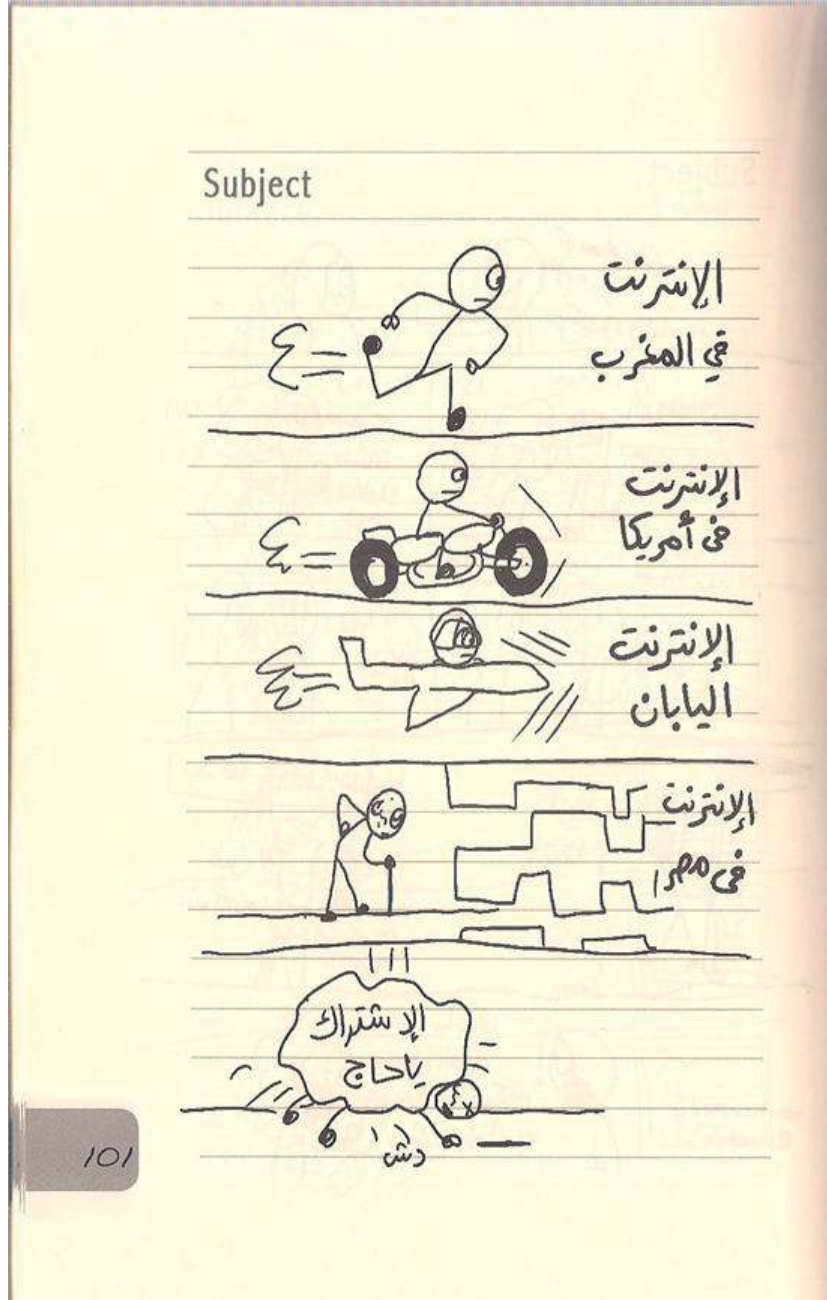 Subject
الإنترنت
في المغرب
الإنترنت
فى أمريكا
الإنترنت
اليابان
الإنترنت
فى مصر!
الإشتراك
ياحاج
دش
101